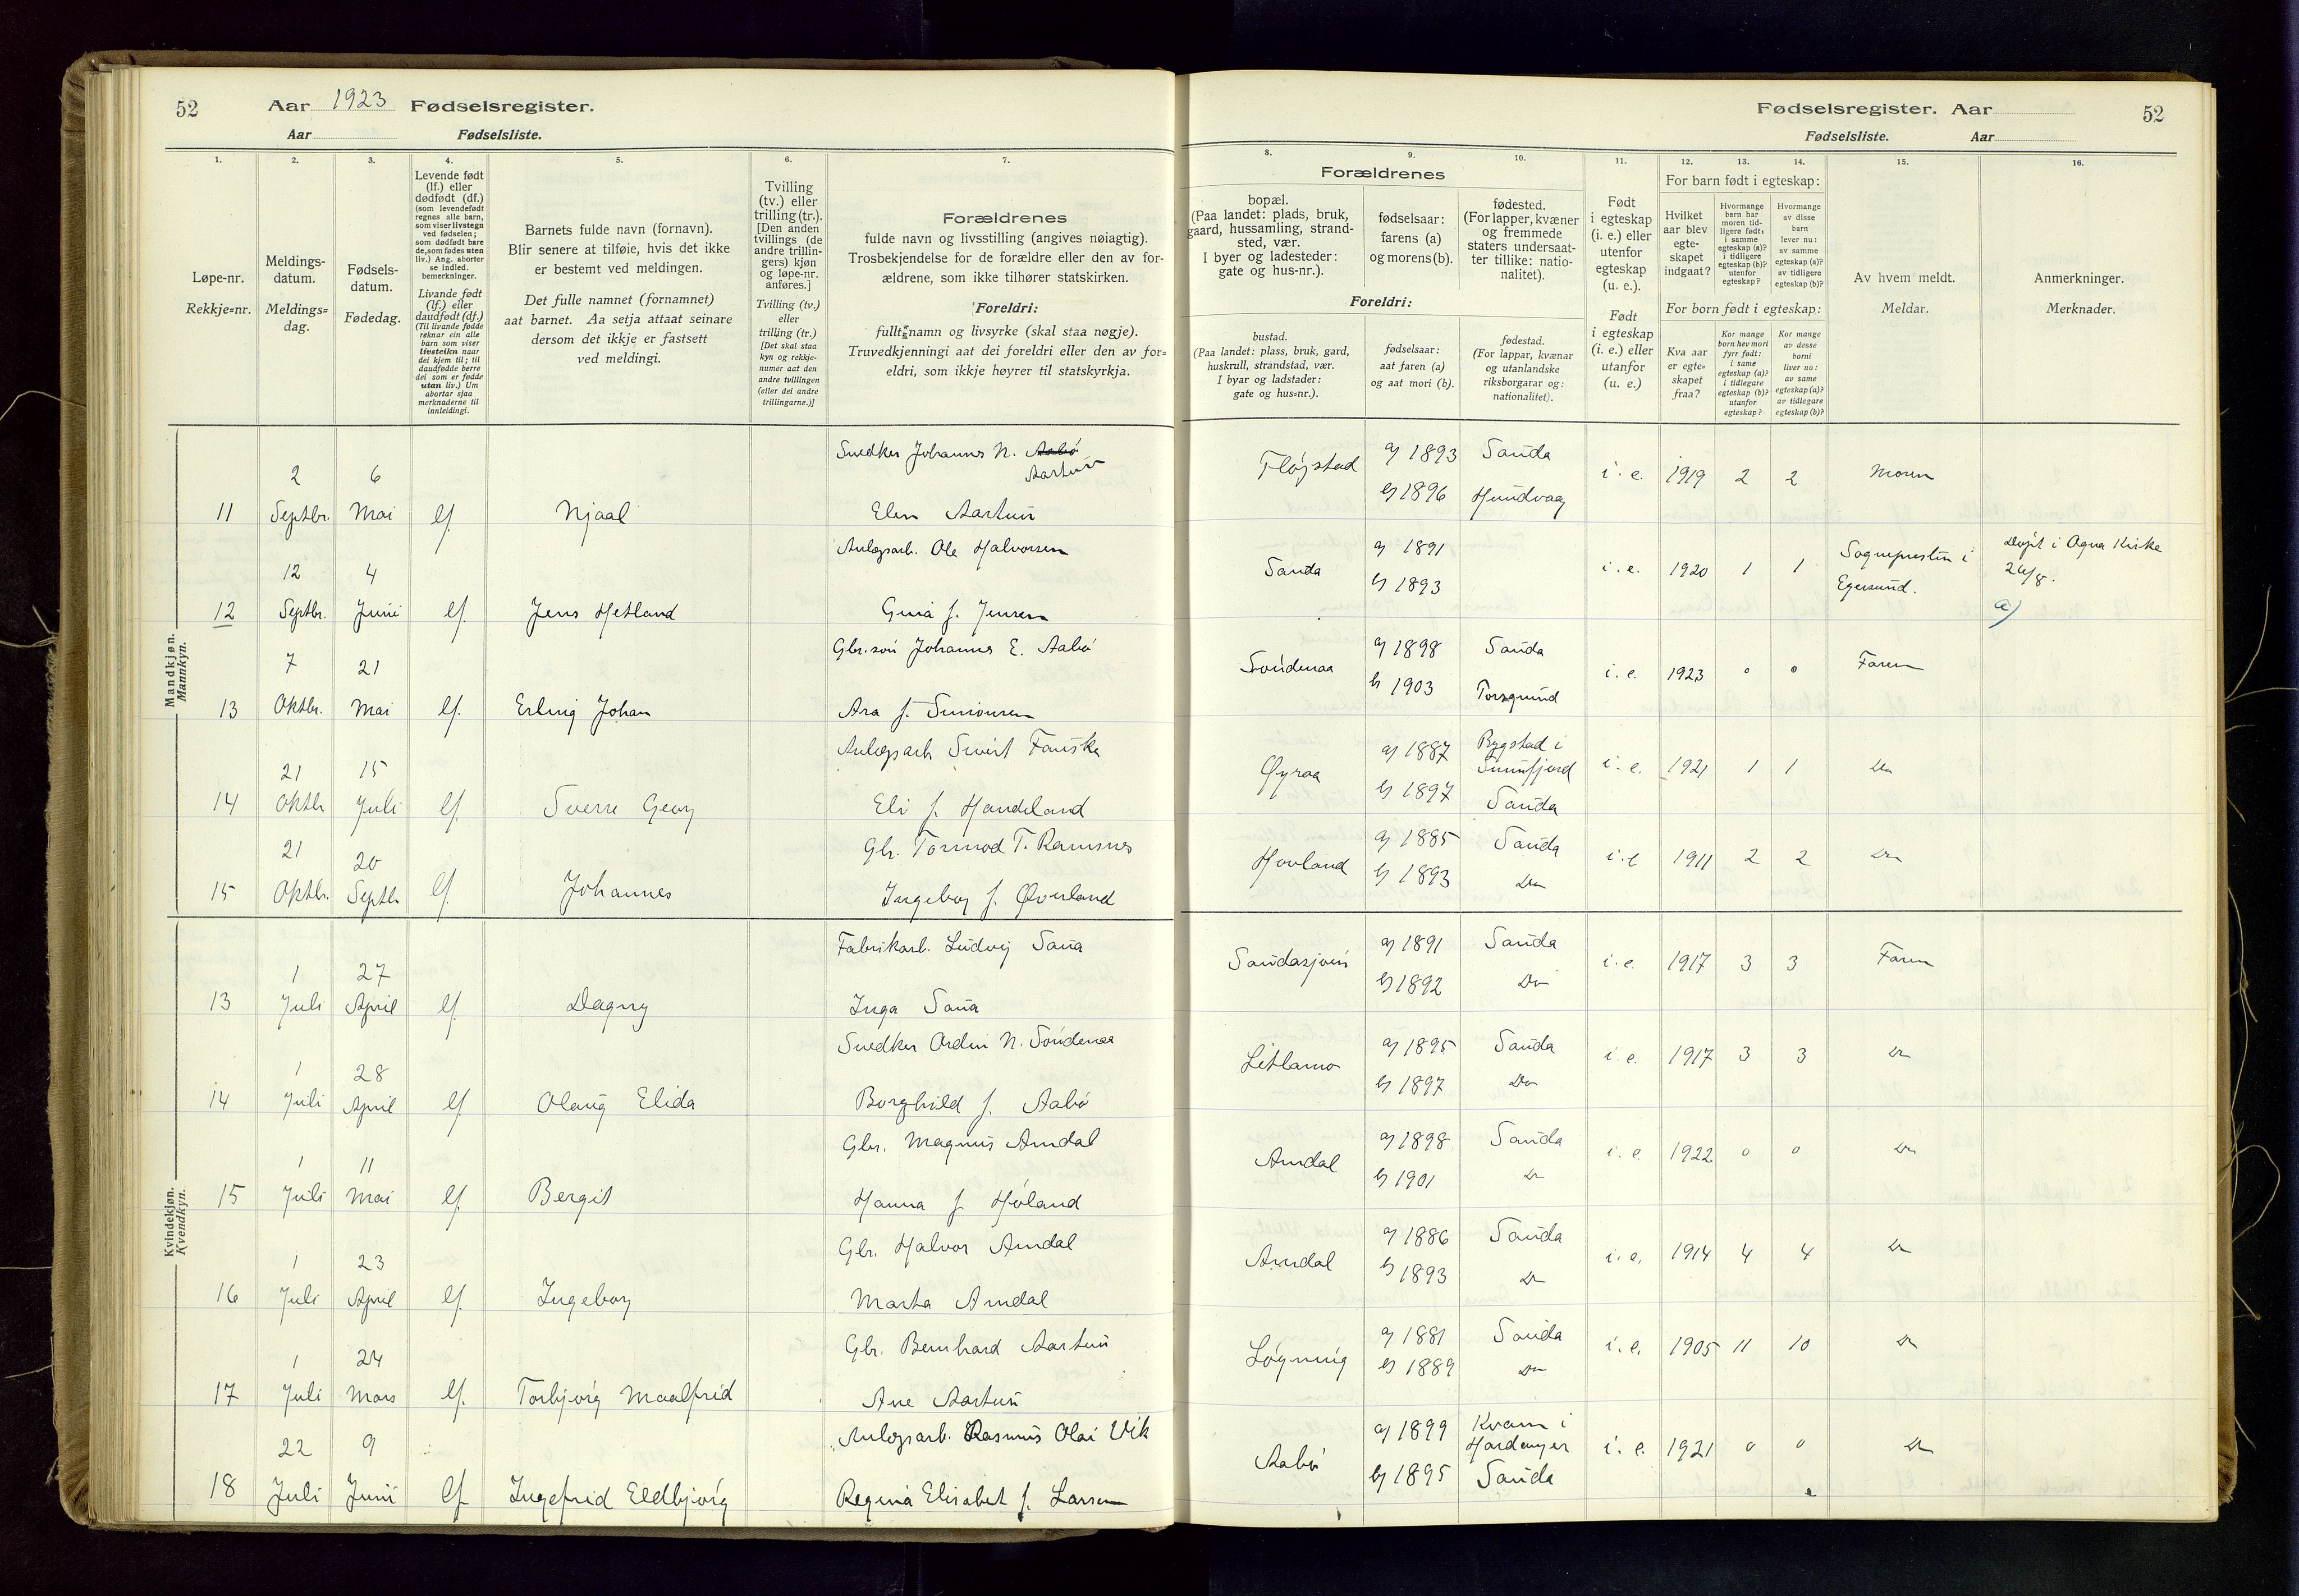 52 Aar 1923 Fødselsregister.
Aar Fødselsliste.
1. 2. 3. 4. 5. 6. 7.
Løpe-nr.
Rekkje=nr.
Meldings-
datum.
Meldings=
dag.
Fødsels-
datum.
Fødedag.
Levende født
(lf.) eller
dødfødt (df.)
(som levendefødt
regnes alle barn,
som viser livstegn
ved fødselen;
som dødfødt bare
de, som fødes uten
liv.) Ang. aborter
se indled.
bemerkninger.
Livande født
(lf.) eller
daudfødt (df.)
(Til livande fødde
reknar ein alle
born som viser
livsteikn naar
dei kjem til; til
daudfødde berre
dei som er fødde
utan liv.) Um
abortar sjaa
merknaderne til
innleidingi.
Barnets fulde navn (fornavn).
Blir senere at tilføie, hvis det ikke
er bestemt ved meldingen.
Det fulle namnet (fornamnet)
aat barnet. Aa setja attaat seinare
dersom det ikkje er fastsett
ved meldingi.
Tvilling
(tv.) eller
trilling (tr.).
[Den anden
tvillings (de
andre trillin-
gers) kjøn
og løpe-nr.
anføres.]
Tvilling (tv.)
eller
trilling (tr.)
[Det skal staa
kyn og rekkje-
numer aat den
andre tvillingen
(eller dei andre
trillingarne.)]
Forældrenes
fulde navn og livsstilling (angives nøiagtig).
Trosbekjendelse for de forældre eller den av for-
ældrene, som ikke tilhører statskirken.
Foreldri:
fullt namn og livsyrke (skal staa nøgje).
Truvedkjenningi aat dei foreldri eller den av for=
eldri, som ikkje høyrer til statskyrkja.
Mandkjøn.
Mannkyn.
2 6 Snedker Johannes N. Aabø
Aartun
11 Septbr. Mai lf. Njaal Elen Aartun
12 4 Anlegsarb. Ole Halvorsen
12 Septbr. Juni lf. Jens Hetland Gina f. Jensen
7 21 Gbr.søn Johannes E. Aabø
13 Oktbr. Mai lf. Erling Johan Asa f. Simonsen
21 15 Anlegsarb. Sivert Fauske
14 Oktbr Juli lf. Sverre Georg Eli f. Handeland
21 20 Gbr. Tormod T. Ramsnes
15 Oktbr. Septbr lf. Johannes Ingeborg f. Øverland
Kvindekjøn.
Kvendkyn.
1 27 Fabrikarb. Ludvig Sana
13 Juli April lf. Dagny Inga Sana
1 28 Snedker Ordin N. Søndenaa
14 Juli April lf. Olaug Elida Borghild f. Aabø
1 11 Gbr. Magnus Amdal
15 Juli Mai lf. Bergit Hanna f. Høland
1 23 Gbr. Halvor Amdal
16 Juli April lf. Ingeborg Marta Amdal
1 24 Gbr. Bernhard Aartun
17 Juli Mars lf. Torbjørg Maalfrid Ane Aartun
22 9 Anlegsarb. Rasmus Olai Vik
18 Juli Juni lf Ingefrid Eldbjørg Regina Elisabet f. Larsen
Fødselsregister. Aar 52
Fødselsliste. Aar
8. 9. 10. 11. 12. 13. 14. 15. 16.
Forældrenes
bopæl.
(Paa landet: plads, bruk,
gaard, hussamling, strand-
sted, vær.
I byer og ladesteder:
gate og hus-nr.).
fødselsaar:
farens (a)
og morens (b).
fødested.
(For lapper, kvæner
og fremmede
staters undersaat-
ter tillike: natio-
nalitet).
Foreldri:
bustad.
(Paa landet: plass, bruk, gard,
huskrull, strandstad, vær.
I byar og ladstader:
gate og hus=nr.).
fødselsaar:
aat faren (a)
og aat mori (b).
fødestad.
(For lappar, kvænar
og utanlandske
riksborgarar og:
nationalitet).
Født
i egteskap
(i. e.) eller
utenfor
egteskap
(u. e.).
Født
i egteskap
(i. e.) eller
utanfor
(u. e.)
For barn født i egteskap:
Hvilket
aar blev
egte-
skapet
indgaat?
Hvormange
barn har
moren tid-
ligere født:
i samme
egteskap (a)?
i tidligere
egteskap (b)?
utenfor
egteskap?
Hvormange
av disse
barn
lever nu:
av samme
egteskap (a)?
av tidligere
egteskap (b)?
For born født i egteskap:
Kva aar
er egte=
skapet
fraa?
Kor mange
born hev mori
fyrr født:
i same
egteskap (a)?
i tidlegare
egteskap (b)?
utanfor
egteskap?
Kor mange
av desse
borni
liver no:
av same
egteskap (a)?
av tidlegare
egteskap (b)?
Av hvem meldt.
Meldar.
Anmerkninger.
Merknader.
Fløgstad a) 1893 Sauda i. e. 1919 2 2 Moren
b) 1896 Hundvaag
Sauda a) 1891 i. e. 1920 1 1 Sogneprestin i Døpt i Ogna Kirke
b) 1893 Egersund. 26/8.
a)
Søndenaa a) 1898 Sauda i. e. 1923 0 0 Faren
b) 1903 Torsgrund
Øyraa a) 1887 Bygstad i
Sunnfjord i. e. 1921 1 1 Do
b) 1897 Sauda
Hovland a) 1885 Sauda i. e 1911 2 2 Do
b) 1893 Do
Saudasjøen a) 1891 Sauda i. e. 1917 3 3 Faren
b) 1892 Do
Litlamo a) 1895 Sauda i. e. 1917 3 3 Do
b) 1897 Do
Amdal a) 1898 Sauda i. e. 1922 0 0 Do
b) 1901 Do
Amdal a) 1886 Sauda i. e. 1914 4 4 Do
b) 1893 Do
Løgning a) 1881 Sauda i. e. 1905 11 10 Do
b) 1889 Do
Aabø a) 1899 Kvam i
Hardanger i. e. 1921 0 0 Do
b) 1895 Sauda